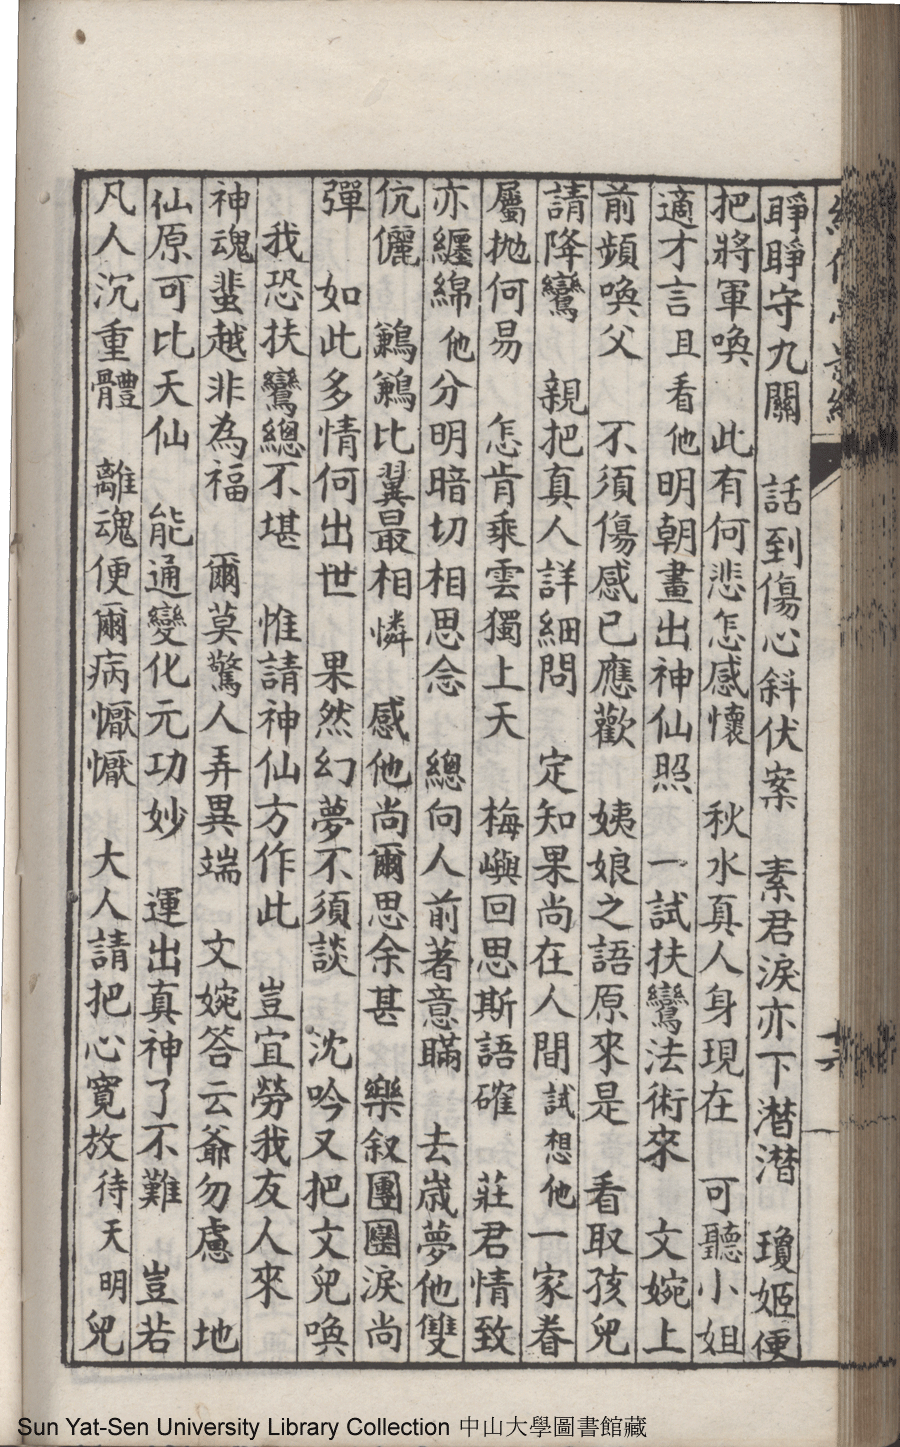 睜睜守九關　話到傷心斜伏案　素君淚亦下潸潸　瓊姬便
把將軍喚　此有何悲怎感懷　秋水真人身現在　可聽小姐
適才言且看他明朝畫出神仙照　一試扶鸞法術來　文婉上
前頻喚父　不須傷感已應歡　姨娘之語原來是　看取孩兒
請降鸞　親把真人詳細問　定知果尚在人間試想他一家眷
屬拋何易　怎肯乘雲獨上天　梅嶼回思斯語確　莊君情致
亦纏綿他分明暗切相思念　總向人前著意瞞　去歲夢他雙
伉儷　鶼鶼比翼最相憐　感他尚爾思余甚　樂叙團圞淚尚
彈　如此多情何出世　果然幻夢不須談　沈吟又把文兒喚
我恐扶鸞總不堪　惟請神仙方作此　豈宜勞我友人來
神魂蜚越非為福　爾莫驚人弄異端　文婉答云爺勿慮　地
仙原可比天仙　能通變化元功妙　運出真神了不難　豈若
凡人沉重體　離魂便爾病懨懨　大人請把心寬放待天明兒
十六
Sun Yat-Sen University Library Collection 中山大學圖書館藏